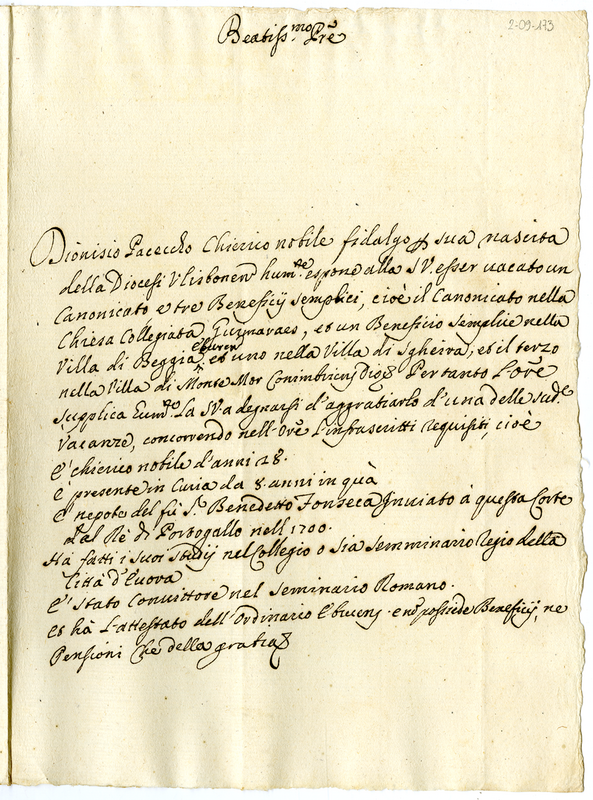 2-09-173
Beatiss.mo Prē
Dionisio Pacecho Chierico nobile fidalgo p sua nascita
della Diocesi Vlisbonen hum.te espone alla S V. esser uacato un
Canonicato e tre Beneficij semplici, cioè il Canonicato nella
Chiesa Collegiata Guimaraes, et un Beneficio semplice nella
Villa di Beggia eburen et uno nella Villa di Sgheira, et il terzo
nella Villa di Monte Mor Conimbriens Dig Per tanto L'orē
supplica Eum.te La S V. a degnarsi d'aggratiarlo d'una delle sud.e
Vacanze, concorrendo nell'Orē L'infrascritti requisiti, cioè
E' chierico nobile d'anni 28.
è presente in Curia da 8 anni in quà
è nepote del fù S.r Benedetto Fonseca Inuiato à questa Corte
dal Rè di Portogallo nell 1700.
Hà fatti i suoi studij nel Collegio o sia semminario regio della
Città d'Euora
E' stato Conuittore nel seminario Romano.
et hà L'attestato dell'Ordinario Eburens e nō possiede Beneficij, ne
Pensioni Che della gratia